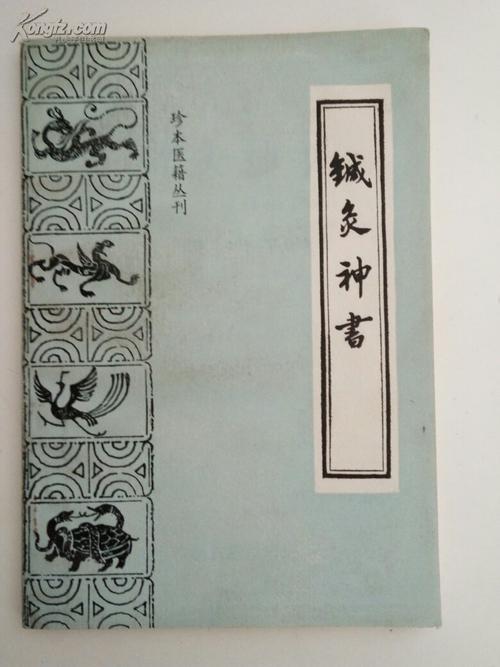 Kongfz.com
珍本医籍丛刊
鍼灸神書